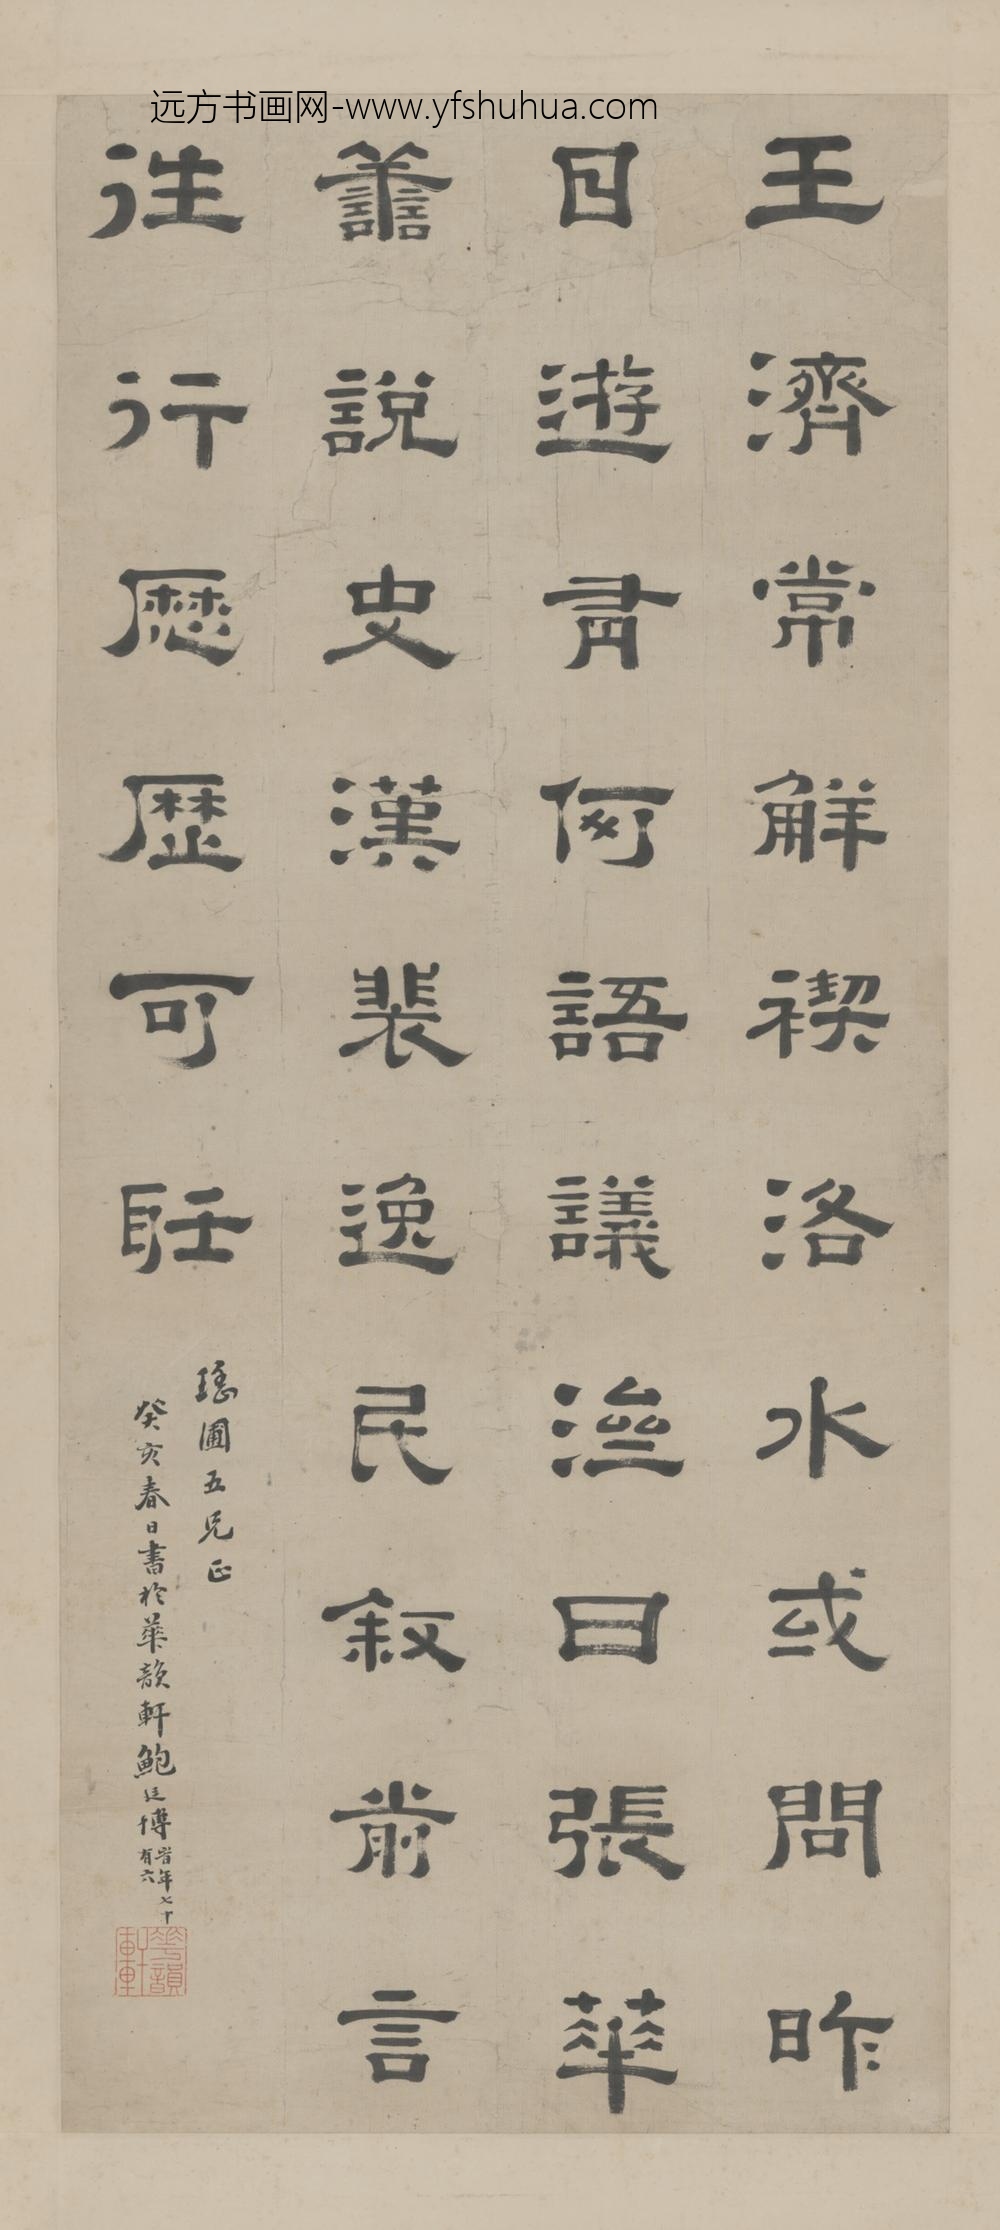 远方书画网-www.yfshuhua.com
王濟常解禊洛水或問昨
日遊有何語議濟曰張華
譱說史漢裴逸民叙前言
往行歷歷可聽
瑤圃五兄正
癸亥春日書於華韻軒鮑廷博
時年七十
有六
華韻軒